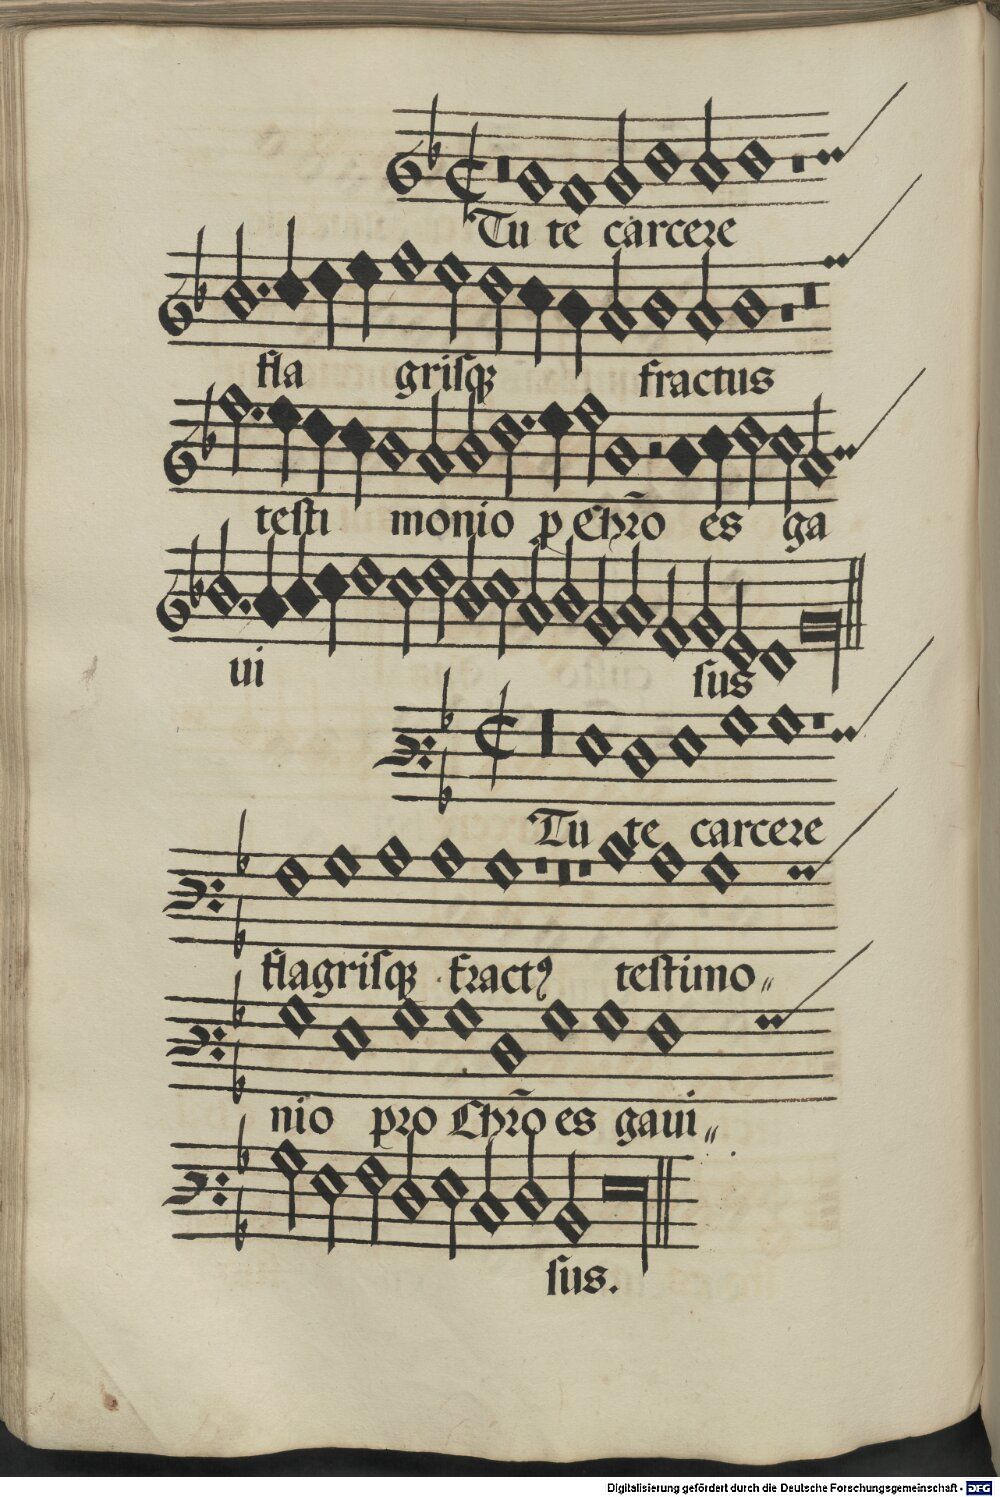 Tu te carcere
fla grisq́ꝫ fractus
testi monio ꝑ Chr̄o es ga
ui sus
Tu te carcere
flagrisqꝫ fractꝰ testimo〃
nio pro Chr̄o es gaui〃
sus.
Digitalisierung gefördert durch die Deutsche Forschungsgemeinschaft - DFG